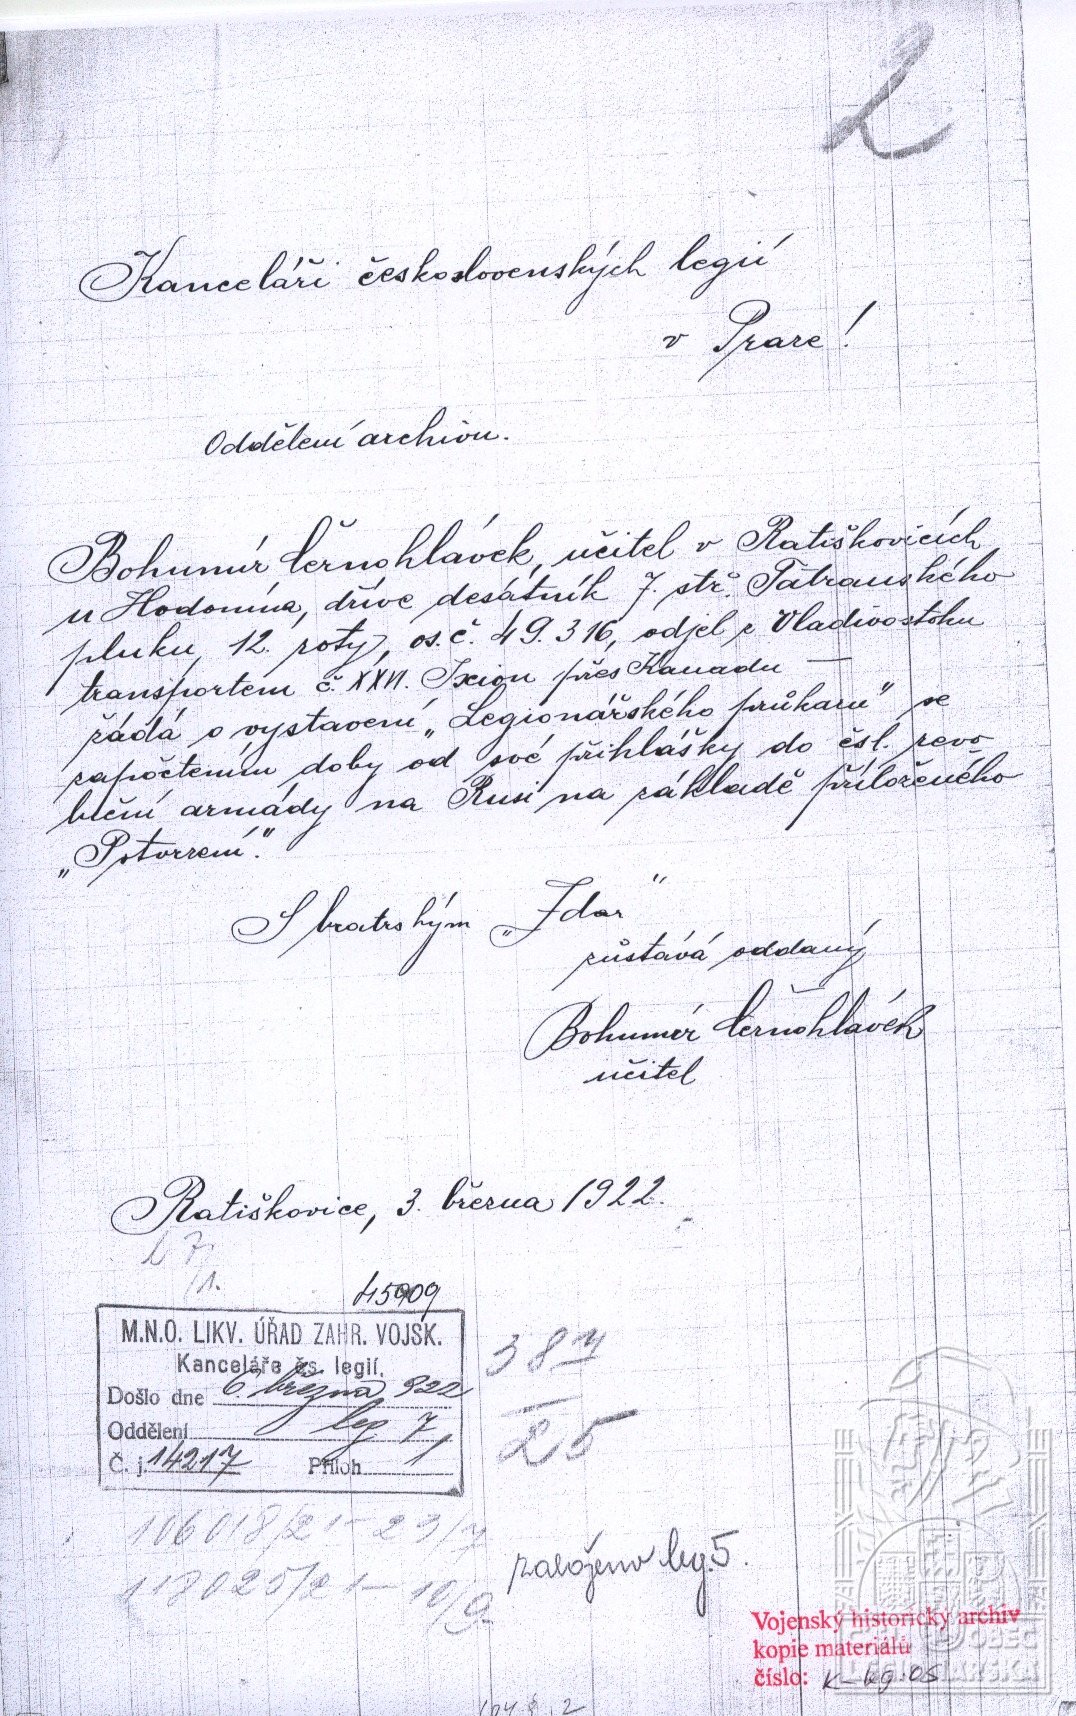 2
Kanceláři československých legií
v Praze!
Oddělení archivu.
Bohumír Černohlávek, učitel v Ratiškovicích
u Hodonína, dříve desátník 7. stř. Tatranského
pluku, 12. roty, os. č. 49.316, odjel z Vladivostoku
transportem č. XXVI. Ixion přes Kanadu —
žádá o vystavení „Legionářského průkazu" se
započtením doby od své přihlášky do čsl. revo
luční armády na Rusi na základě přiloženého
„Potvrzení."
S bratrským „Zdar"
zůstává oddaný
Bohumír Černohlávek
učitel
Ratiškovice, 3. března 1922.
45909
M.N.O. LIKV. ÚŘAD ZAHR. VOJSK.
Kanceláře čs. legií.
Došlo dne 6. března 922
Oddělení leg 7
Č. j. 14217 Příloh 1
387
25
106018/21 - 23/7
118025/21 - 10/9.
založeno leg. 5.
Vojenský historický archiv
kopie materiálů
číslo: K-leg.05
OBEC
LEGIONÁŘSKÁ